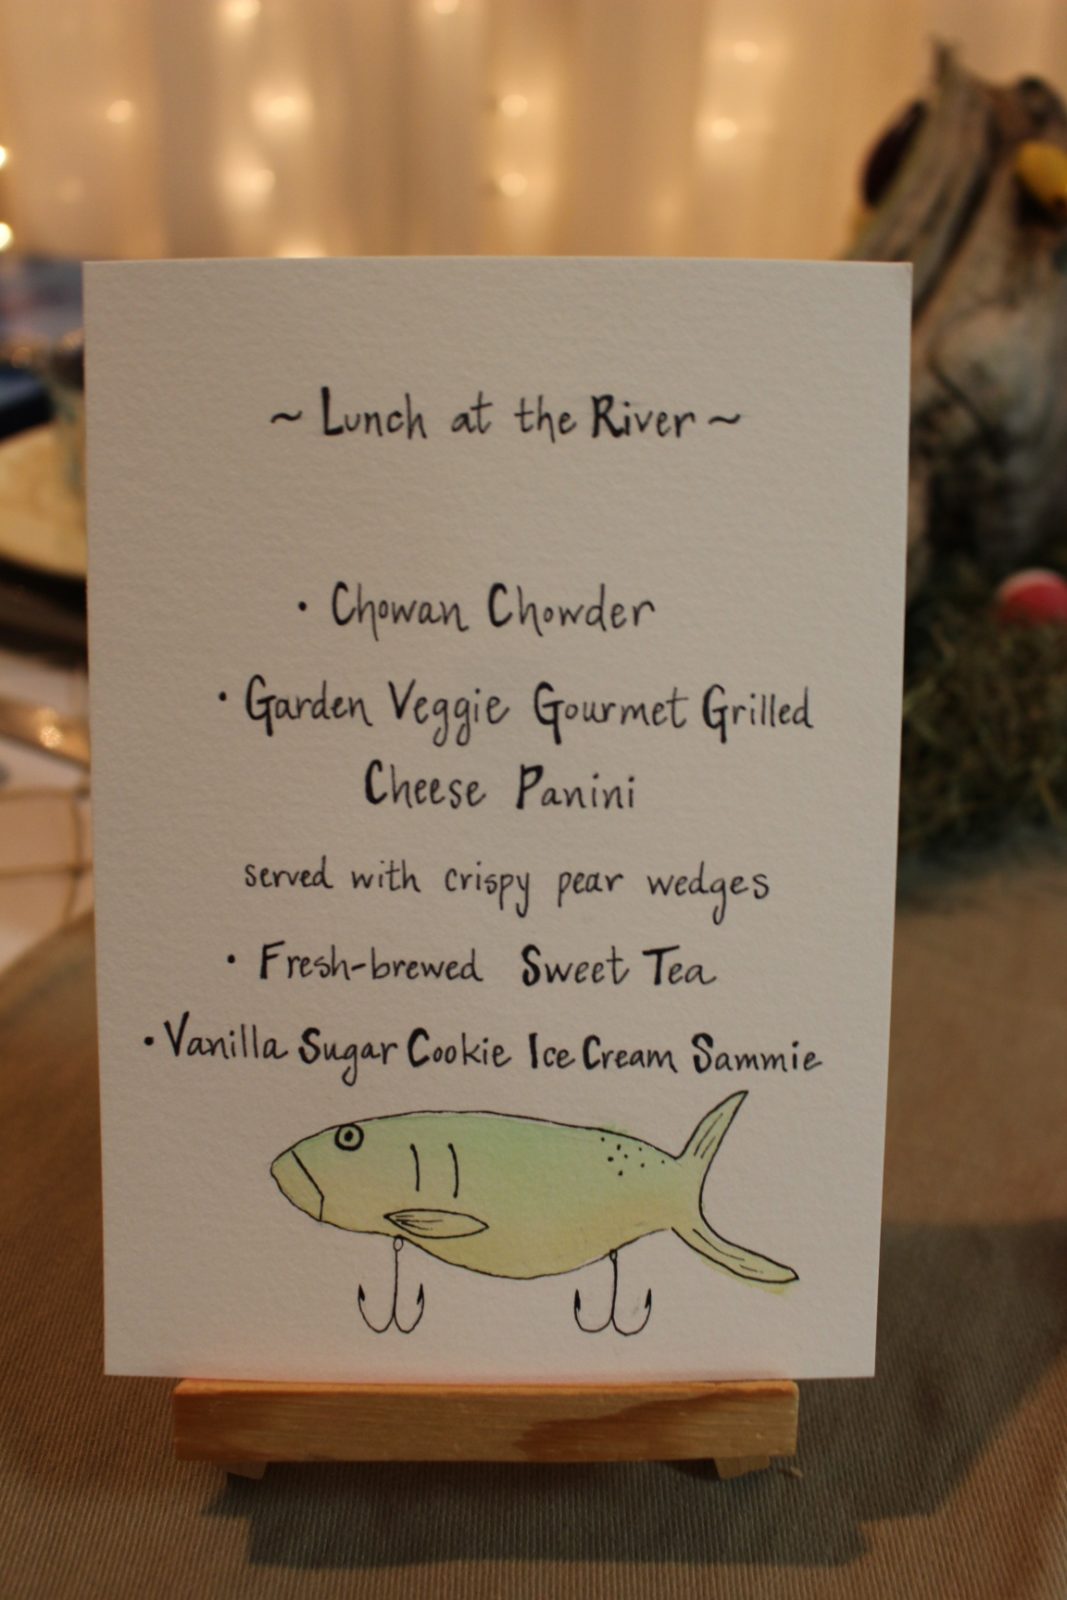 ~ Lunch at the River ~
• Chowan Chowder
• Garden Veggie Gourmet Grilled
Cheese Panini
served with crispy pear wedges
• Fresh-brewed Sweet Tea
• Vanilla Sugar Cookie Ice Cream Sammie